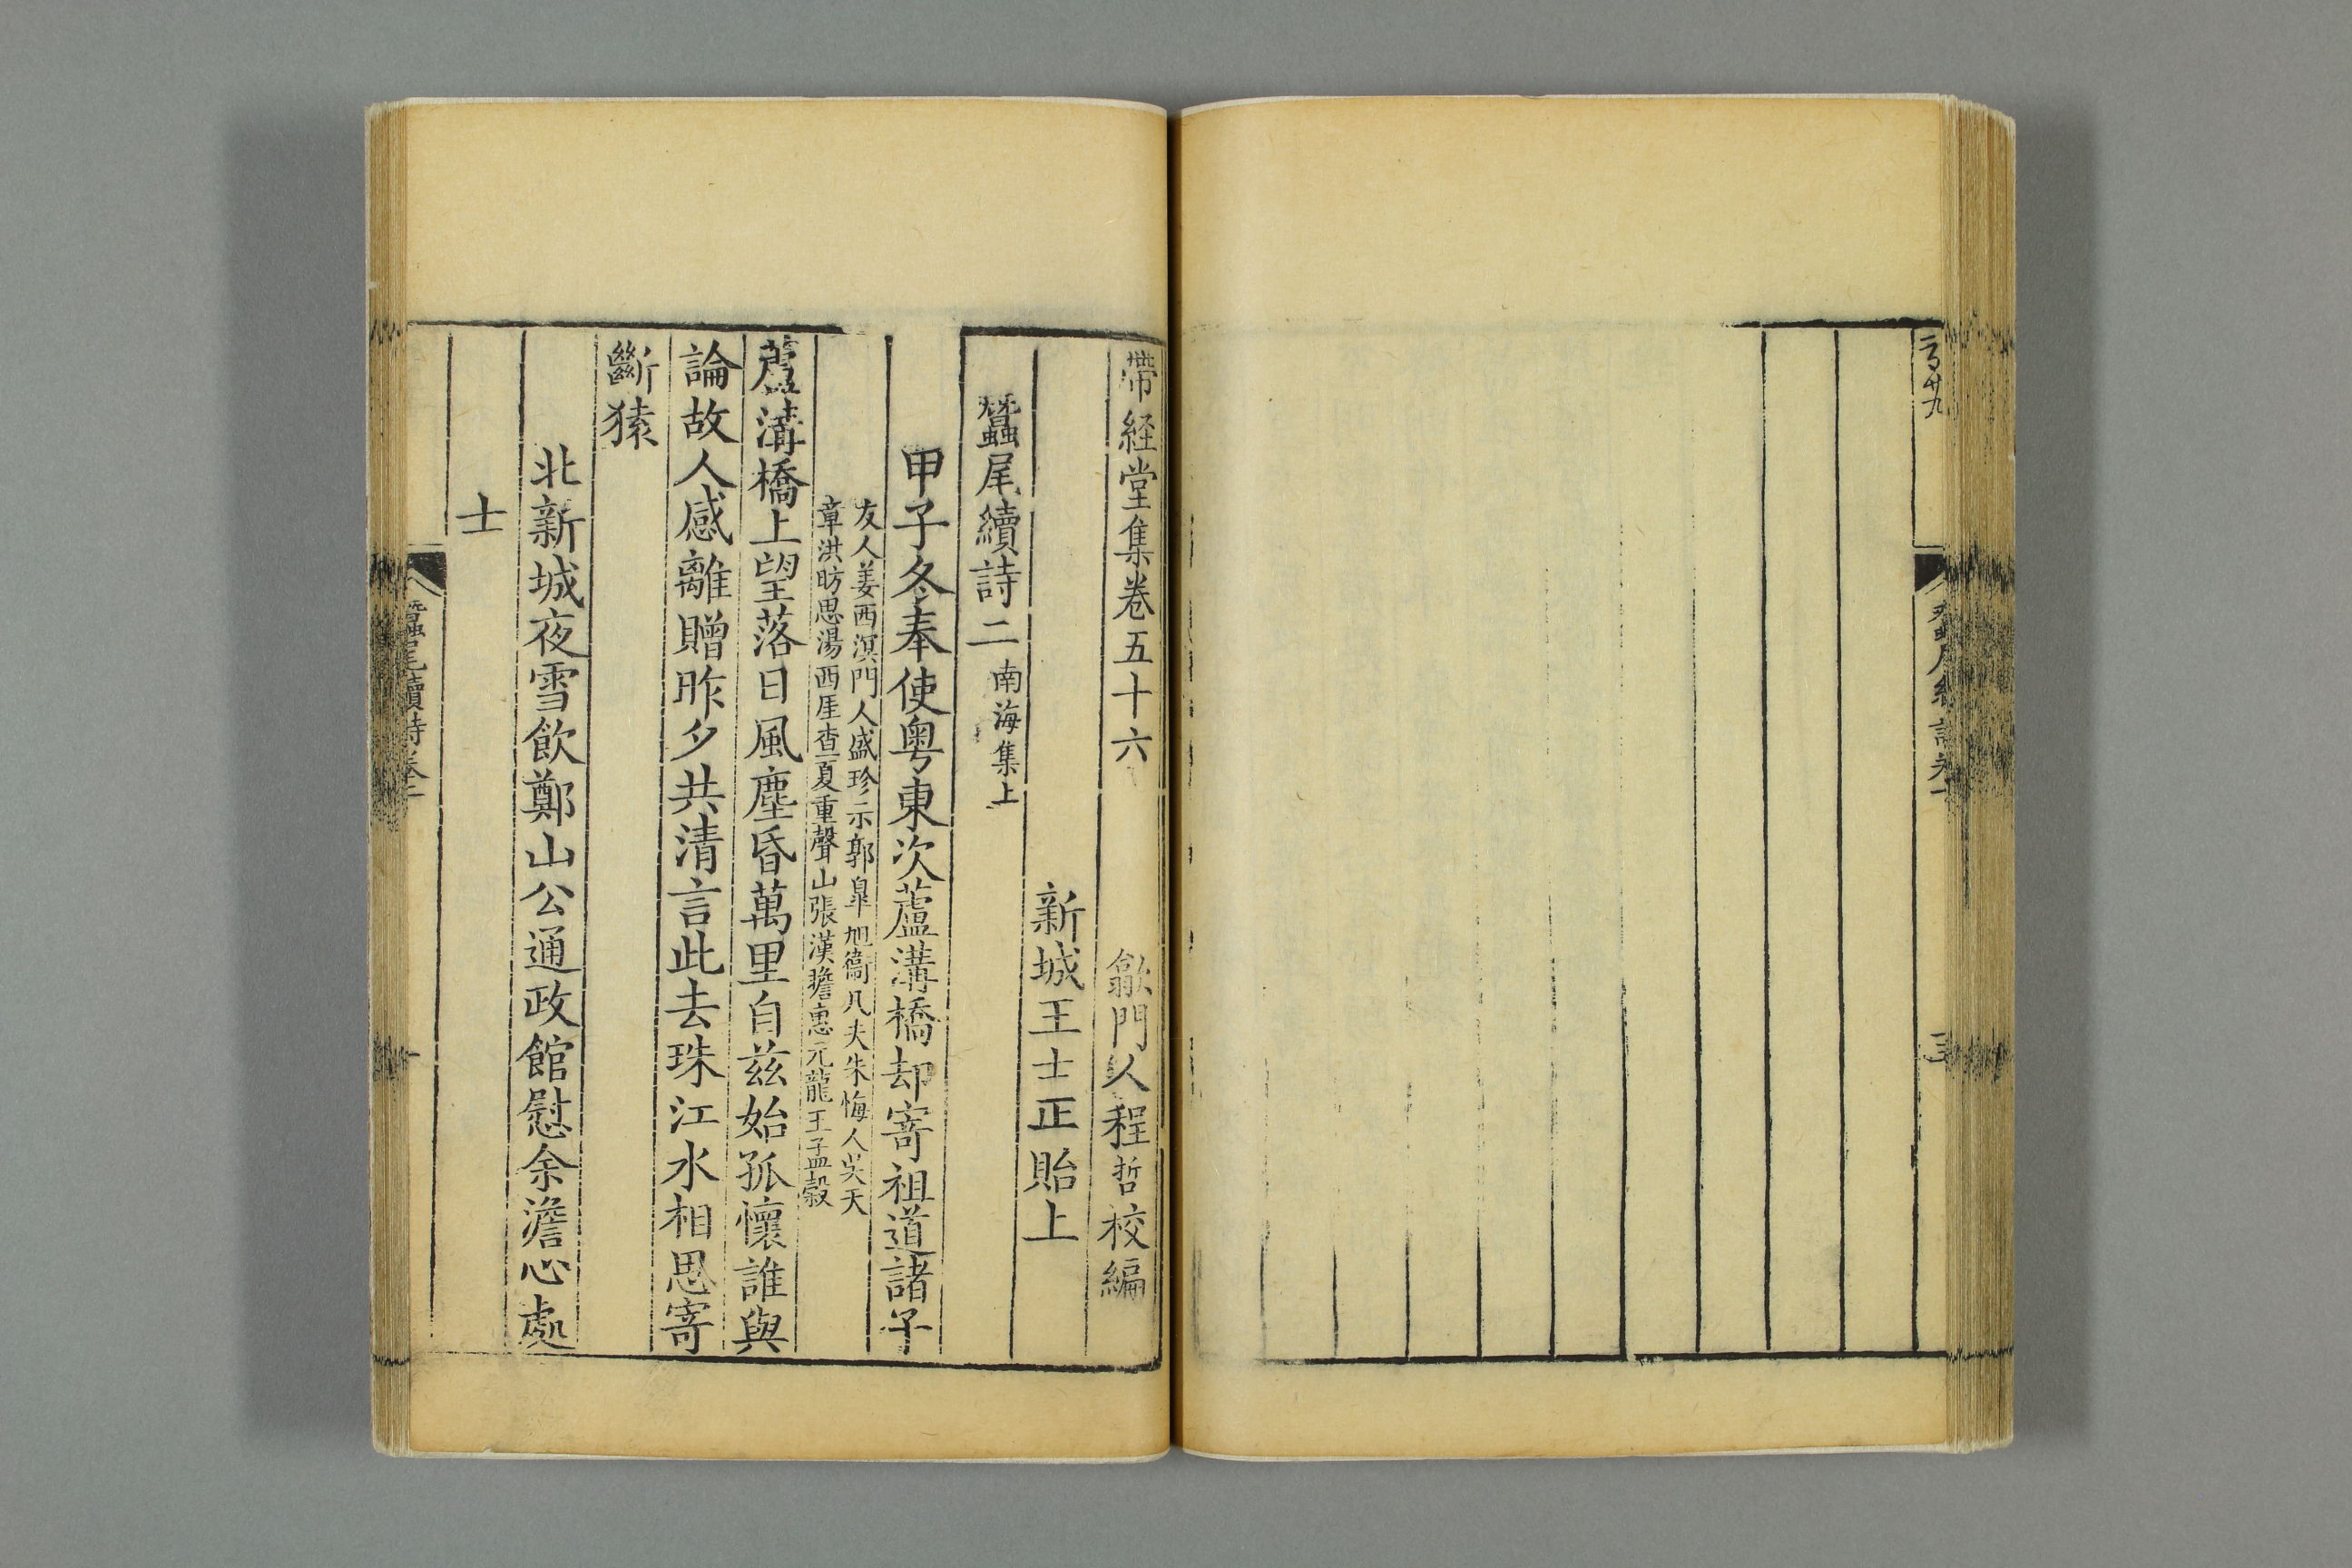 帶経堂集卷五十六 歙門人程哲校編
新城王士正貽上
蠶尾續詩二 南海集上
甲子冬奉使粵東次蘆溝橋却寄祖道諸子
友人姜西溟門人盛珍示郭臯旭衛凡夫朱悔人吳天
章洪昉思湯西厓查夏重聲山張漢瞻惠元龍王孟穀
蘆溝橋上望落日風塵昏萬里自兹始孤懷誰與
論故人感離贈昨夕共清言此去珠江水相思寄
斷猿
北新城夜雪飲鄭山公通政館慰余澹心處
士
蠶尾續詩卷二